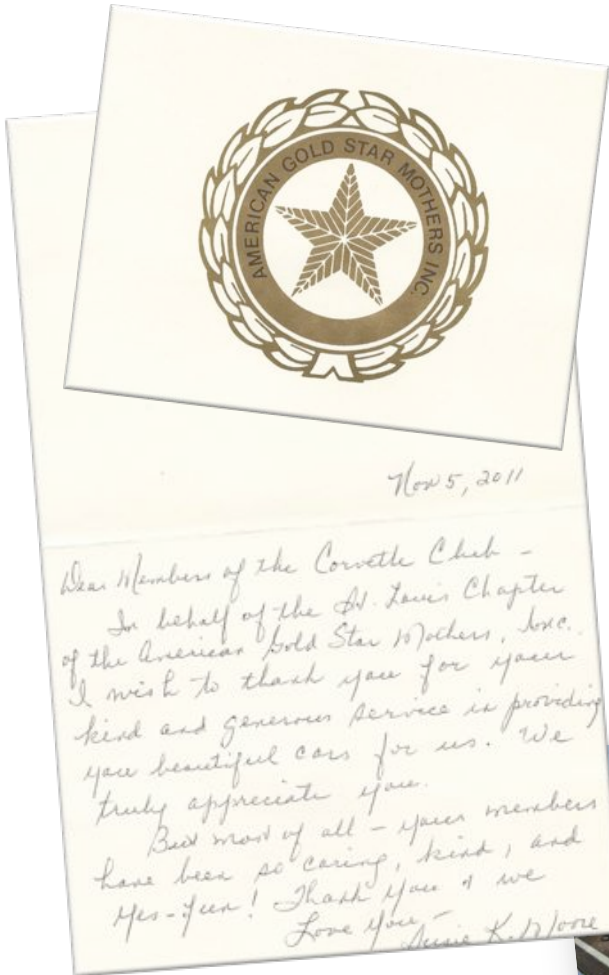 AMERICAN GOLD STAR MOTHERS INC.
Nov 5, 2011
Dear Members of the Corvette Club -
In behalf of the St. Louis Chapter
of the American Gold Star Mothers, Inc.
I wish to thank you for your
kind and generous service in providing
you beautiful cars for us. We
truly appreciate you.
But most of all - your members
have been so caring, kind, and
yes - fun! Thank you & we
Love you -
Susie K. Moore